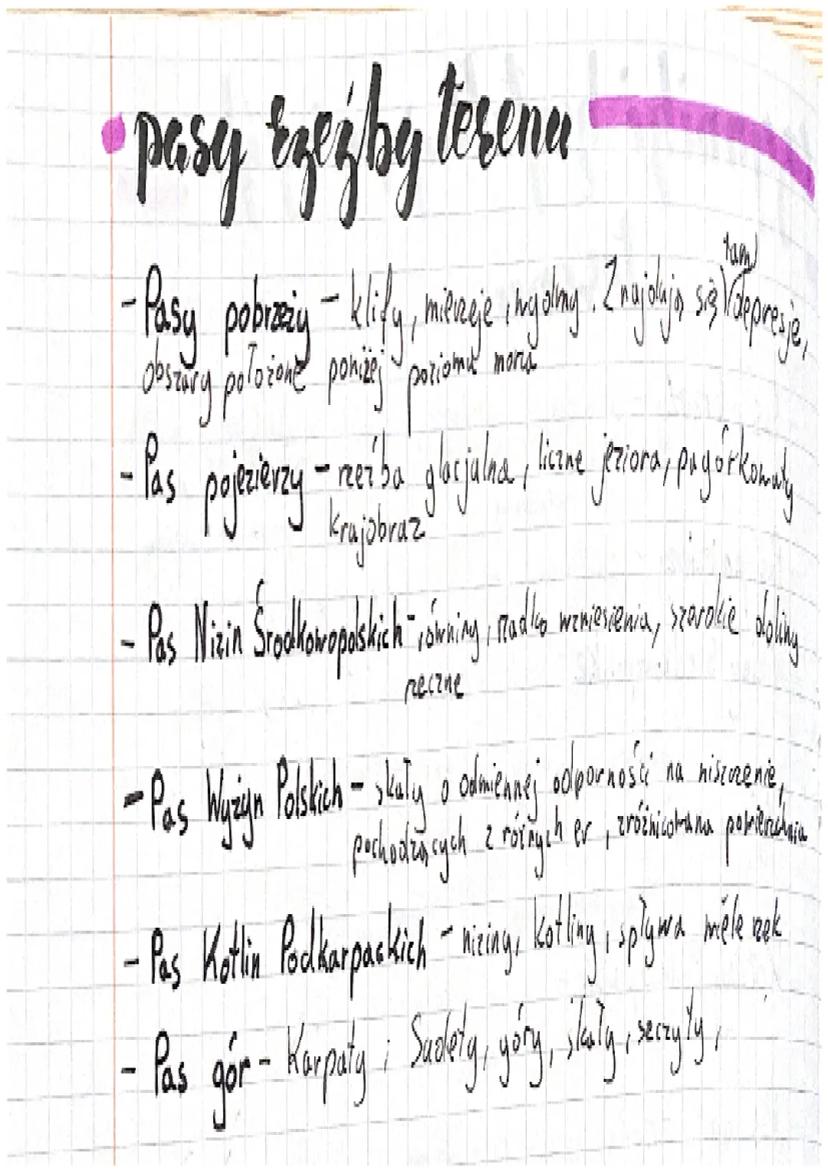 • pasy rzeźby terenu
- Pasy pobrzeży - klify, mierzeje, wydmy. Znajdują się tam depresje,
obszary położone poniżej poziomu morza
- Pas pojezierzy - rzeźba glacjalna, liczne jeziora, pagórkowaty
krajobraz
- Pas Nizin Środkowopolskich - równiny, rzadko wzniesienia, szerokie doliny
rzeczne
- Pas Wyżyn Polskich - skały o odmiennej odporności na niszczenie,
pochodzących z różnych er, zróżnicowana powierzchnia
- Pas Kotlin Podkarpackich - niziny, kotliny, spływa wiele rzek
- Pas gór - Karpaty i Sudety, góry, skały, szczyty,